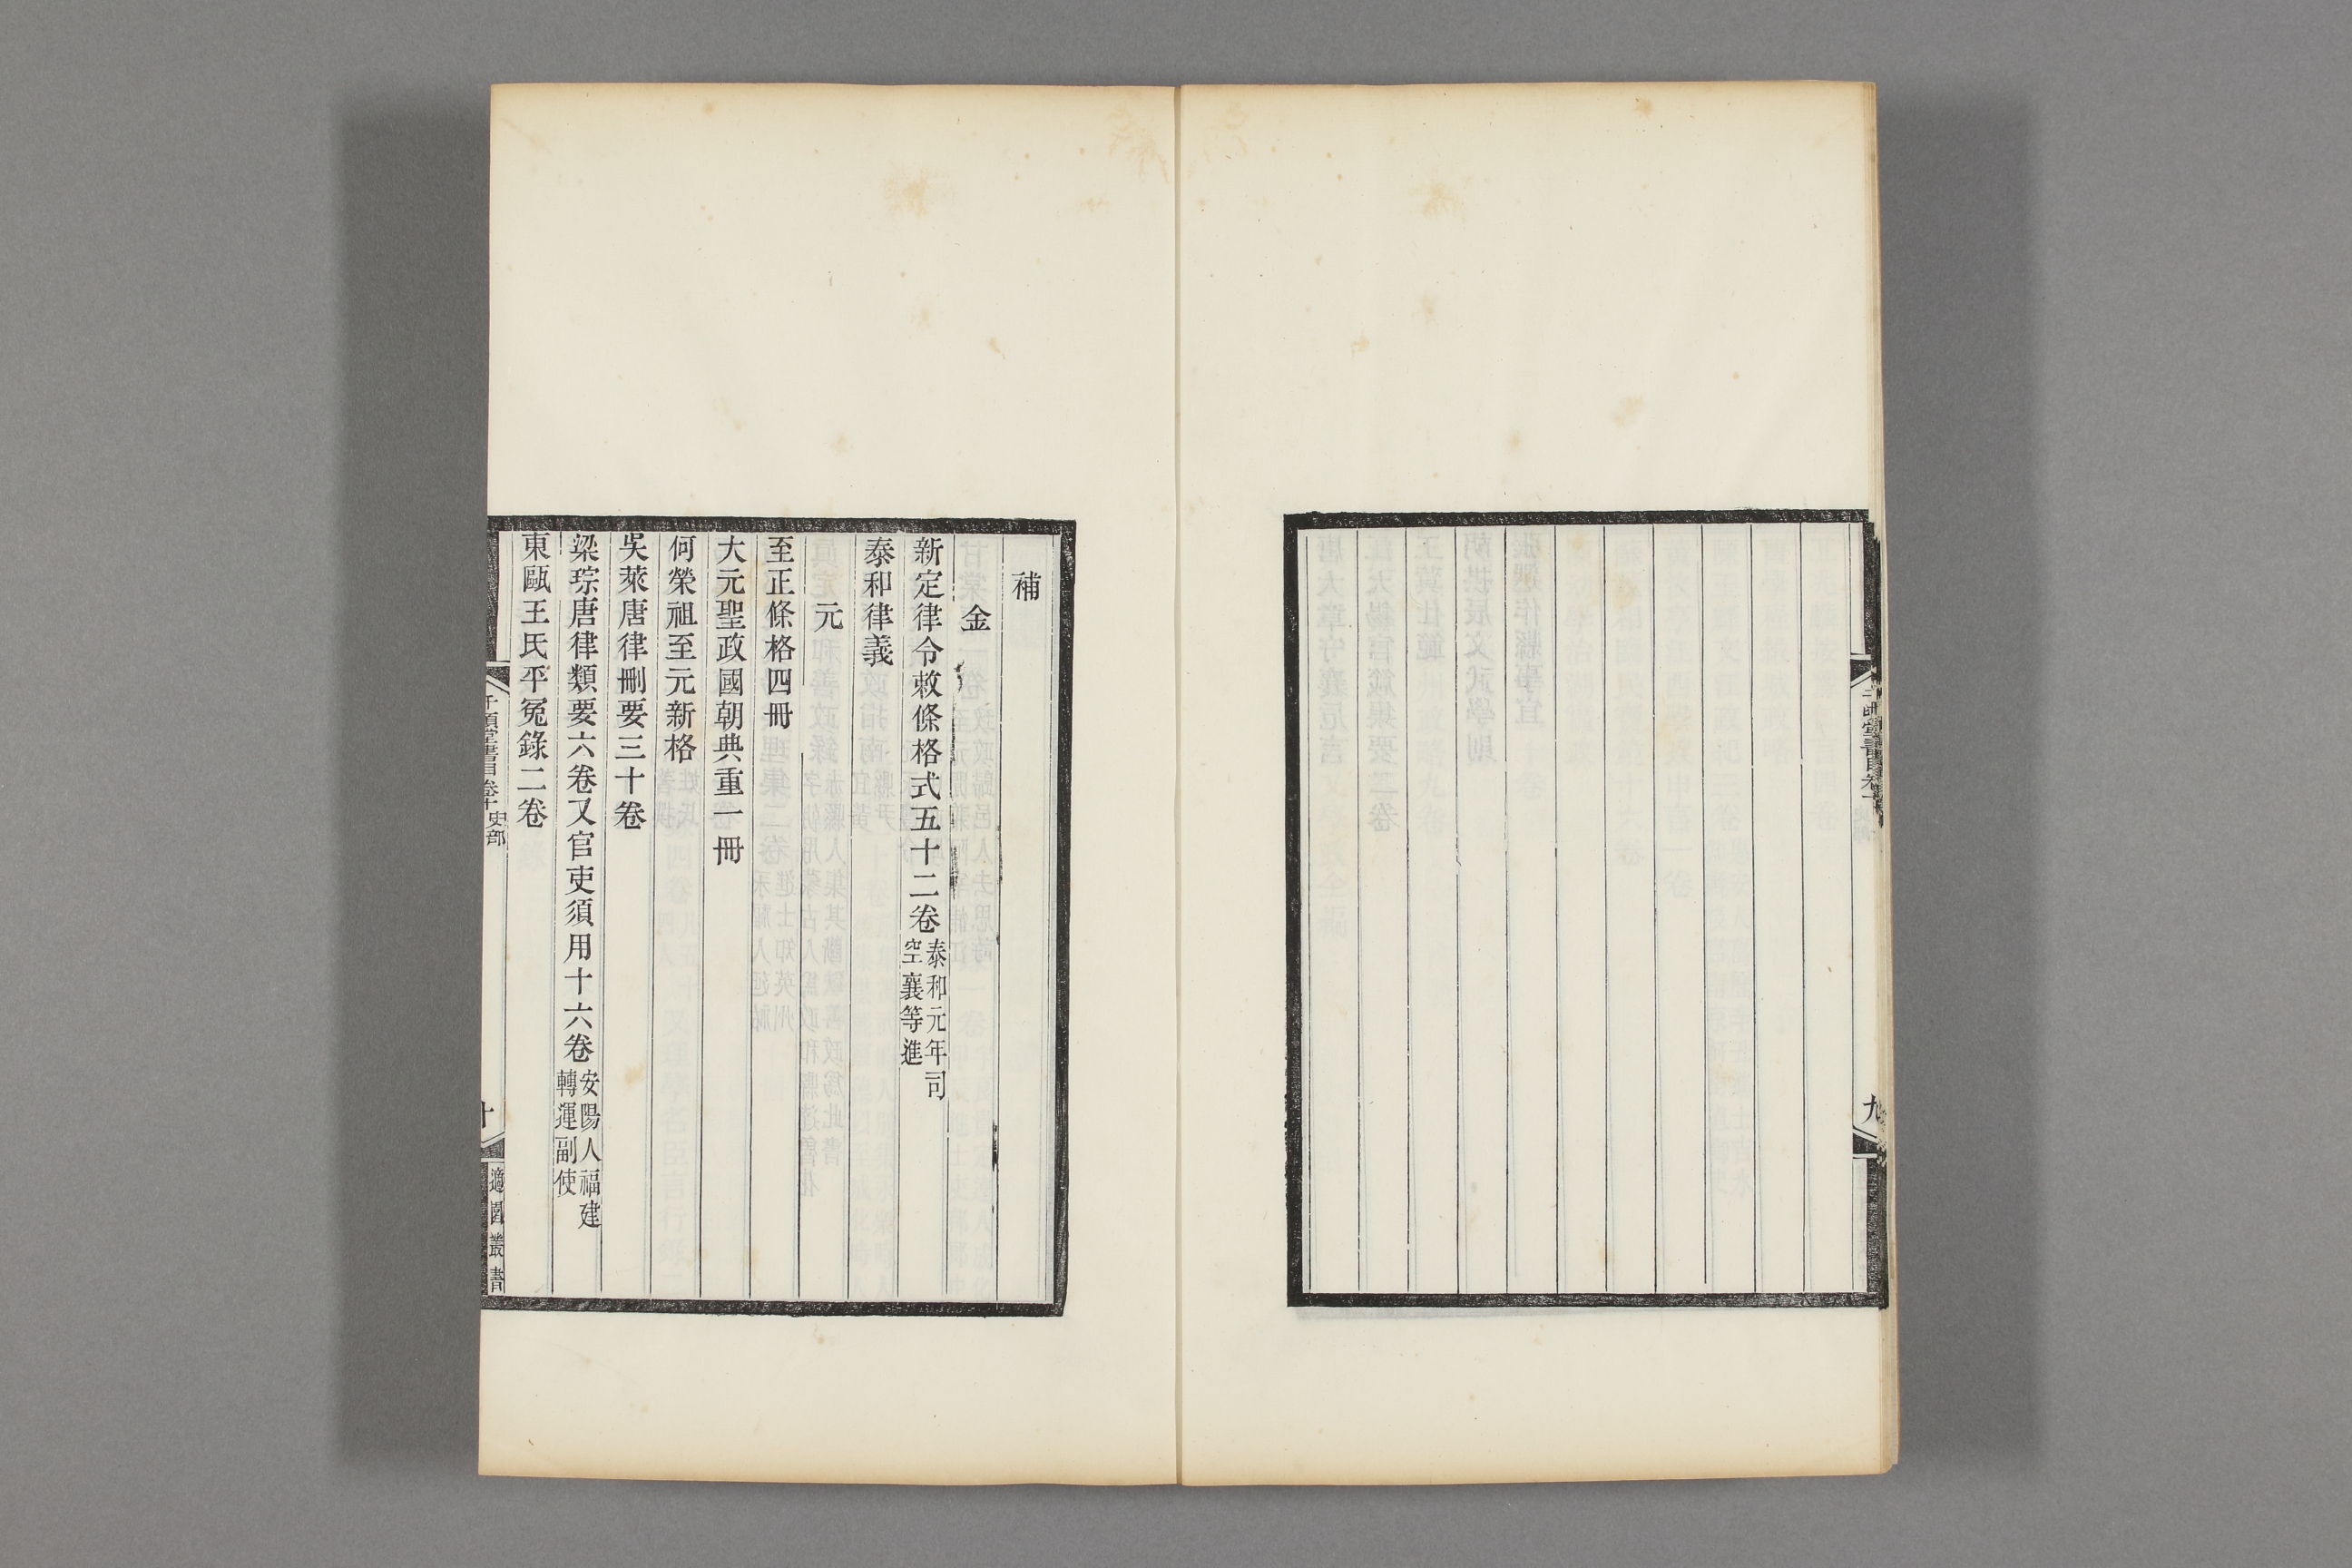 九
補
金
新定律令敕條格式五十二卷泰和元年司
空襄等進
泰和律義
元
至正條格四冊
大元聖政國朝典重一冊
何榮祖至元新格
吳萊唐律刪要三十卷
梁琮唐律類要六卷又官吏須用十六卷安陽人福建
轉運副使
東甌王氏平冤錄二卷
千頃堂書目卷十 史部
十
適園叢書